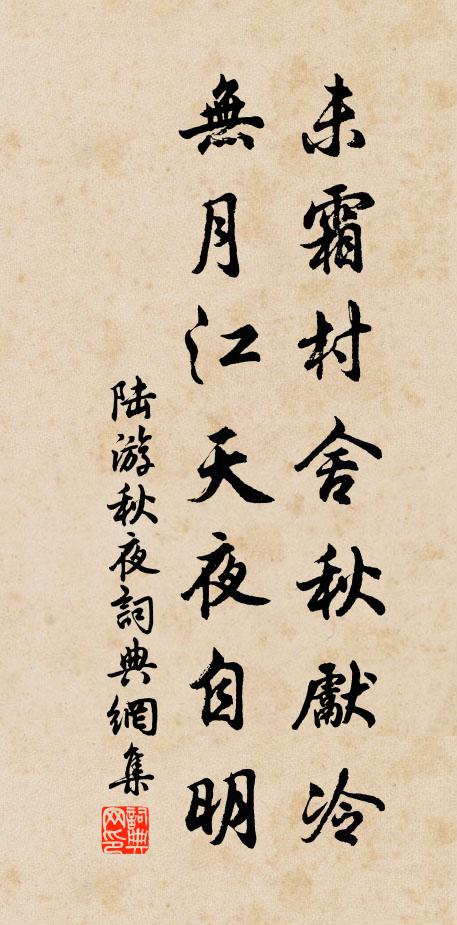 未霜村舍秋獻冷
無月江天夜自明
陆游秋夜詞典網集
詞典網印